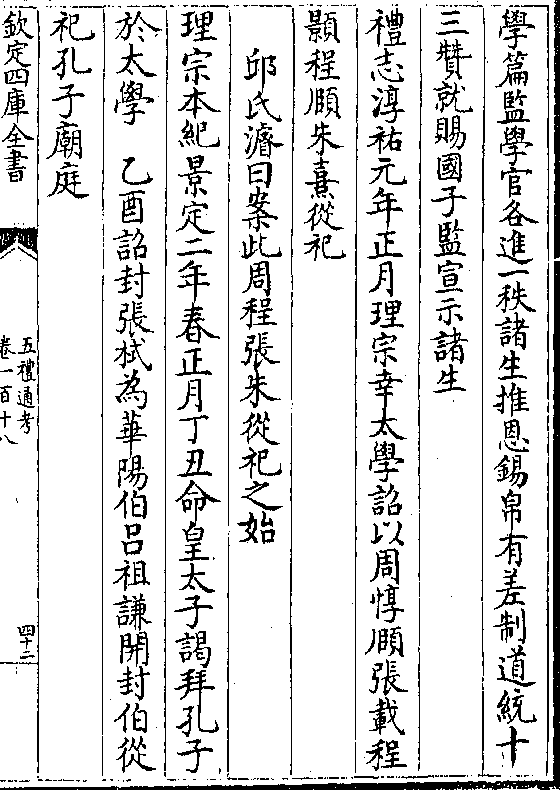 學篇監學官各進一秩諸生推恩錫帛有差制道統十
三贊就賜國子監宣示諸生
禮志淳祐元年正月理宗幸太學詔以周惇頤張載程
顥程頤朱熹從祀
邱氏濬曰案此周程張朱從祀之始
理宗本紀景定二年春正月丁丑命皇太子謁拜孔子
於太學　乙酉詔封張栻為華陽伯呂祖謙開封伯從
祀孔子廟庭
欽定四庫全書
五禮通考
卷一百十八
四十二